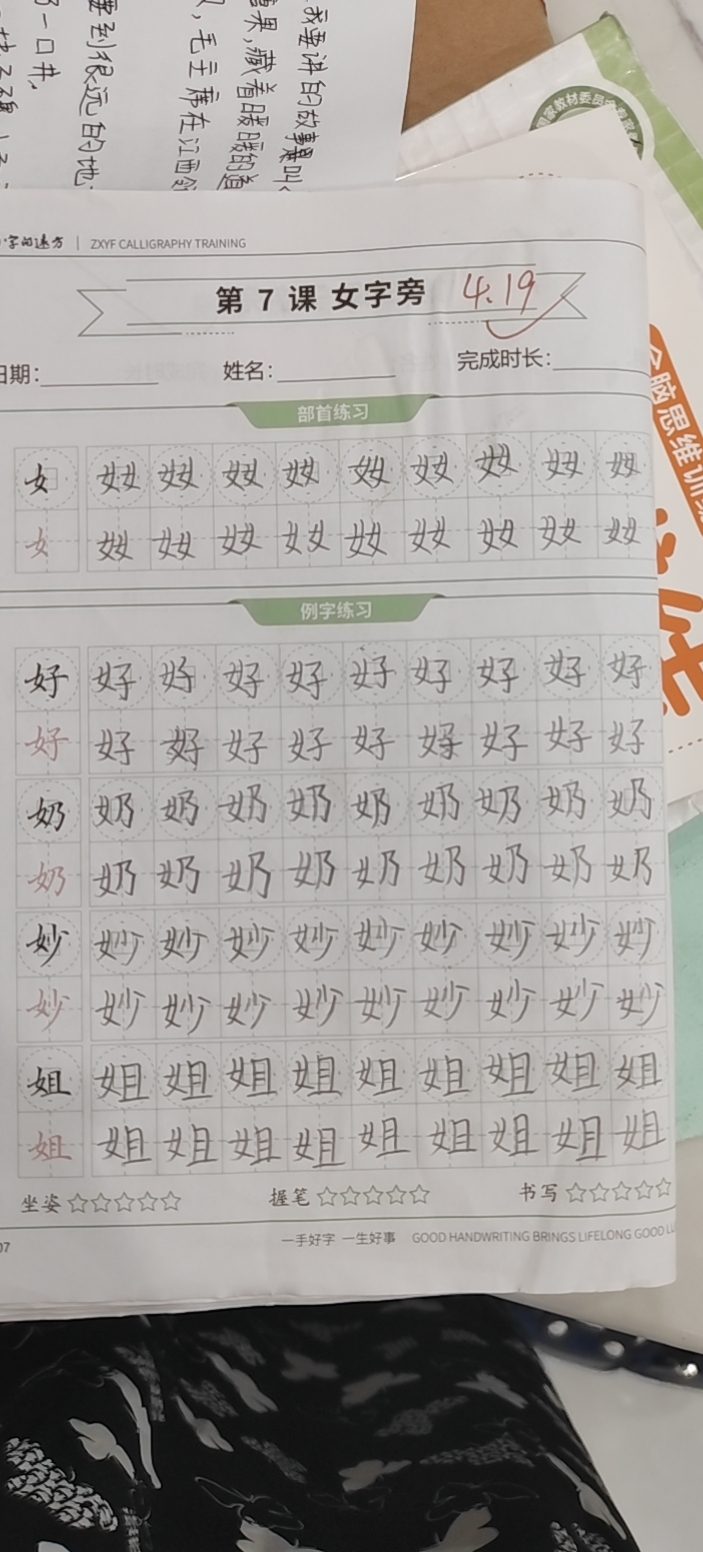 我要讲的故事是叫
藏着暖暖的道
毛主席在江西
要到很远的地
一口井，
国家教材委员会专家
ZXYF CALLIGRAPHY TRAINING
第 7 课 女字旁 4.19
日期： 姓名： 完成时长：
部首练习
女 女女 女女 女女 女女 女女 女女 女女 女女 女女
女 女女 女女 女女 女女 女女 女女 女女 女女 女女
例字练习
好 好 好 好 好 好 好 好 好 好
好 好 好 好 好 好 好 好 好 好
奶 奶 奶 奶 奶 奶 奶 奶 奶 奶
奶 奶 奶 奶 奶 奶 奶 奶 奶 奶
妙 妙 妙 妙 妙 妙 妙 妙 妙 妙
妙 妙 妙 妙 妙 妙 妙 妙 妙 妙
姐 姐 姐 姐 姐 姐 姐 姐 姐 姐
姐 姐 姐 姐 姐 姐 姐 姐 姐 姐
坐姿☆☆☆☆☆ 握笔☆☆☆☆☆ 书写☆☆☆☆☆
07 一手好字 一生好事 GOOD HANDWRITING BRINGS LIFELONG GOOD LU
全脑思维训练